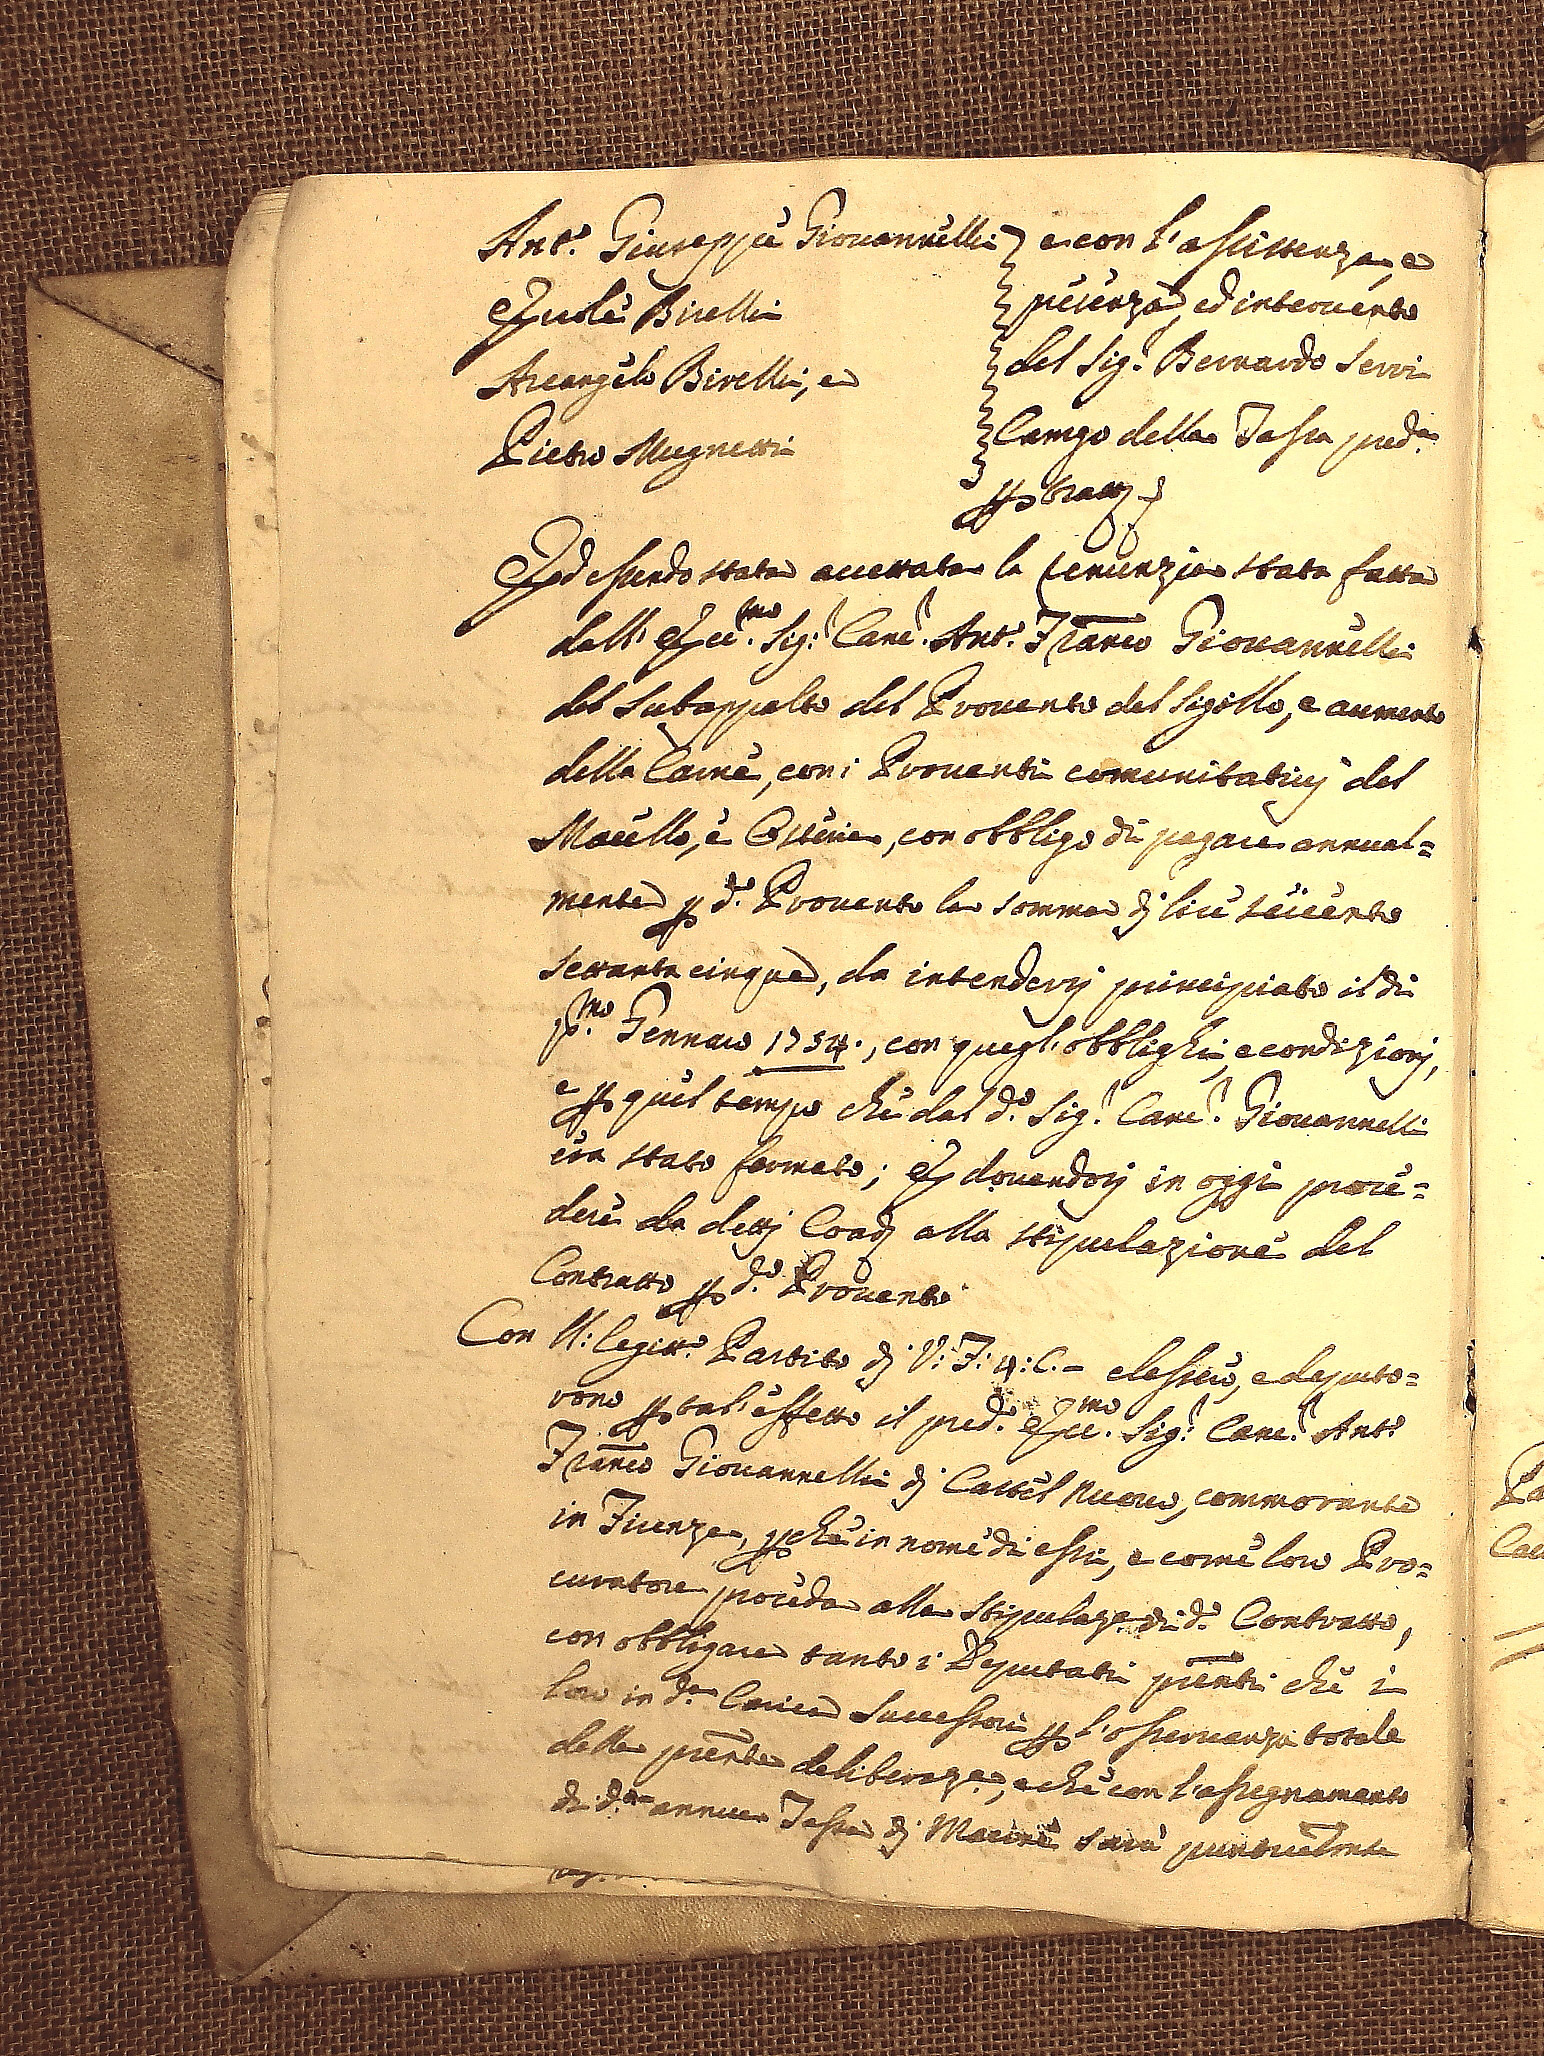 Ant.o Giuseppe Giovannelli
Ercole Birelli
Arcangelo Birelli, e
Pietro Mugnetti
e con l'assistenza, e
presenza, ed intervento
del Sig.r Bernardo Servi
Camgo della Tassa pred.a
Ed essendo stata accettata la renunzia stata fatta
dall' Ecc.mo Sig.r Canc.r Ant.o Franco Giovannelli
del Subappalto del Provento del Sigillo, e aumento
della Carne, con i Proventi comunitativj del
Macello, e Osteria, con obbligo di pagare annual=
mente p d.o Provento la somma dj lire seicento
settanta cinque, da intendersj principiato il di
p.mo Gennaro 1754., con quegl'obblighi, e condizionj,
e p quel tempo che dal d.o Sig.r Canc.r Giovannelli
era stato fermato; E dovendosj in oggi proce=
dere da dettj Coadj alla stipulazione del
Contratto p d.o Provento
Con lor legitt.o Partito dj V: F: 4: C.- elessero, e deputo=
rono p tal'effetto il pred.o Ecc.mo Sig.r Canc.r Ant.o
Franco Giovannelli dj Castel Nuovo, commorante
in Firenze, p che in nome di essi, e come loro Pro=
curatore proceda alla Stipulaz.e di d.o Contratto,
con obbligare tanto i Deputati prenti che i
loro in d.a Carica Successori p l'osservanza totale
della prente deliberaz.e, e che con l'assegnamento
di d.a annua Tassa dj Macine sarà puntualmte